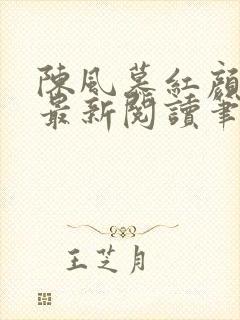 陳風慕紅顏
最新閱讀筆
王芝月